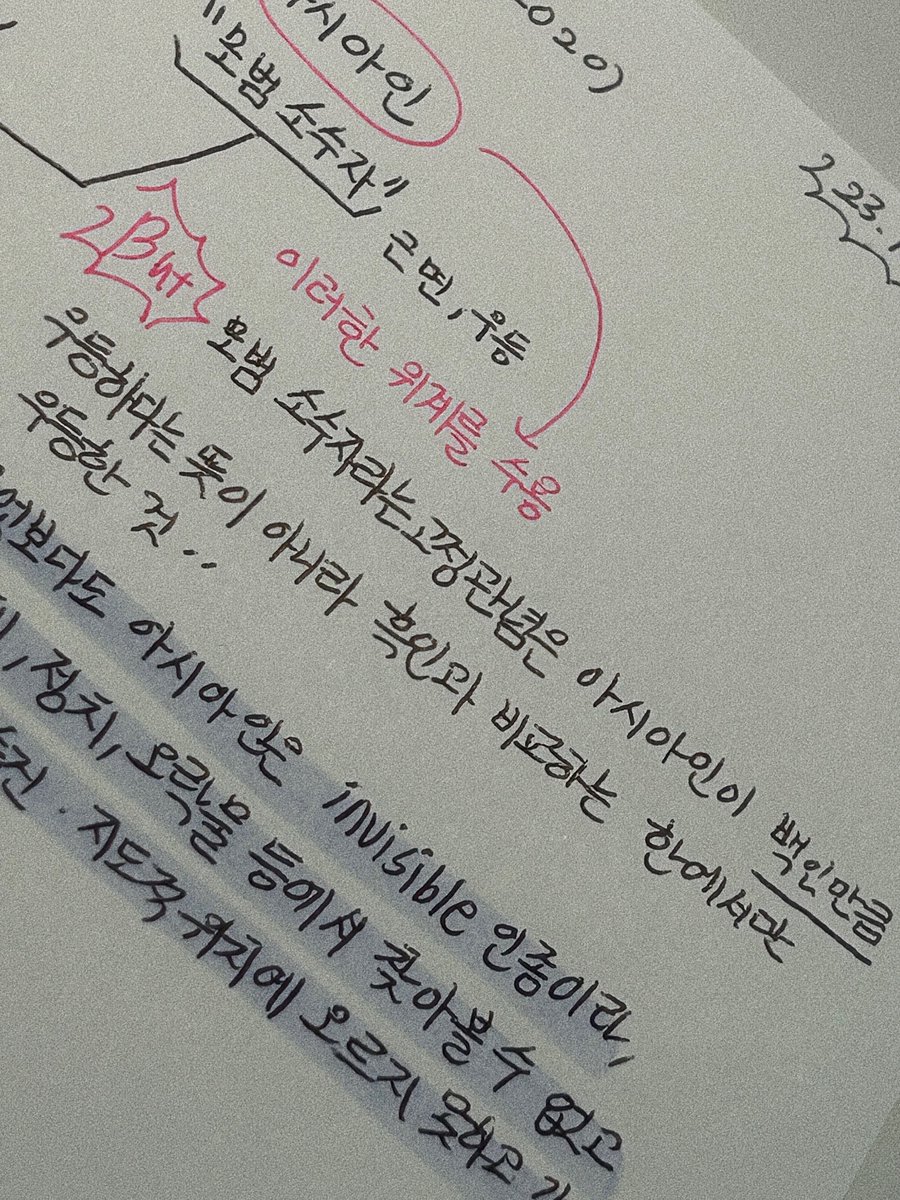 2020)
시아인
"모범 소수자"
근면, 우등
이러한 위계를 수용
But
모범 소수자라는 고정관념은 아시아인이 백인만큼
우등하다는 뜻이 아니라 흑인과 비교하는 한에서만
우등한 것..
보다도 아시아인은 invisible 인종이라,
정치, 오락물 등에서 찾아볼 수 없고
지도적 위치에 오르지 못하고